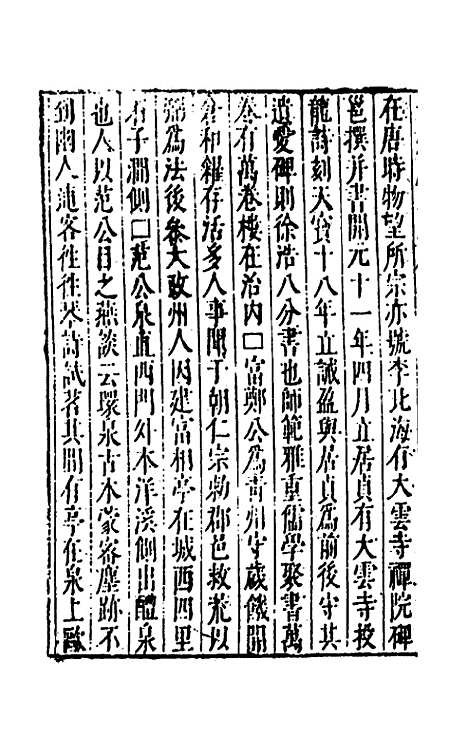 在唐時物望所宗亦號李北海有大雲寺禪院碑
邕撰并書開元十一年四月立居貞有大雲寺投
龍詩刻天寶十八年立誠盈與居貞為前後守其
遺愛碑則徐浩八分書也師範雅重儒學聚書萬
卷有萬卷樓在治内囗富鄭公為青州守歲饑開
倉和糴存活多人事聞于朝仁宗勅郡邑救荒以
弼為法後叅大政州人因建富相亭在城西四里
石子澗側囗范公泉直西門外本洋溪側出醴泉
也人以范公目之燕談云環泉古木蒙密塵跡不
到幽人逋客往往琴詩試茗其間有亭在泉上歐